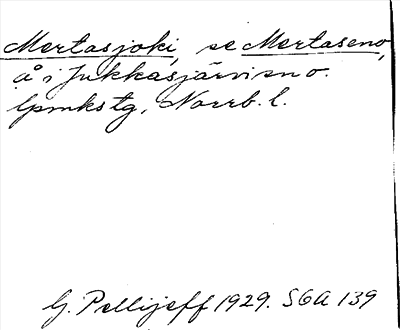 Mertasjoki, se Mertaseno,
å i Jukkasjärvi sn o.
lpmkstg, Norrb. l.
G. Pellijeff 1929. SOA 139